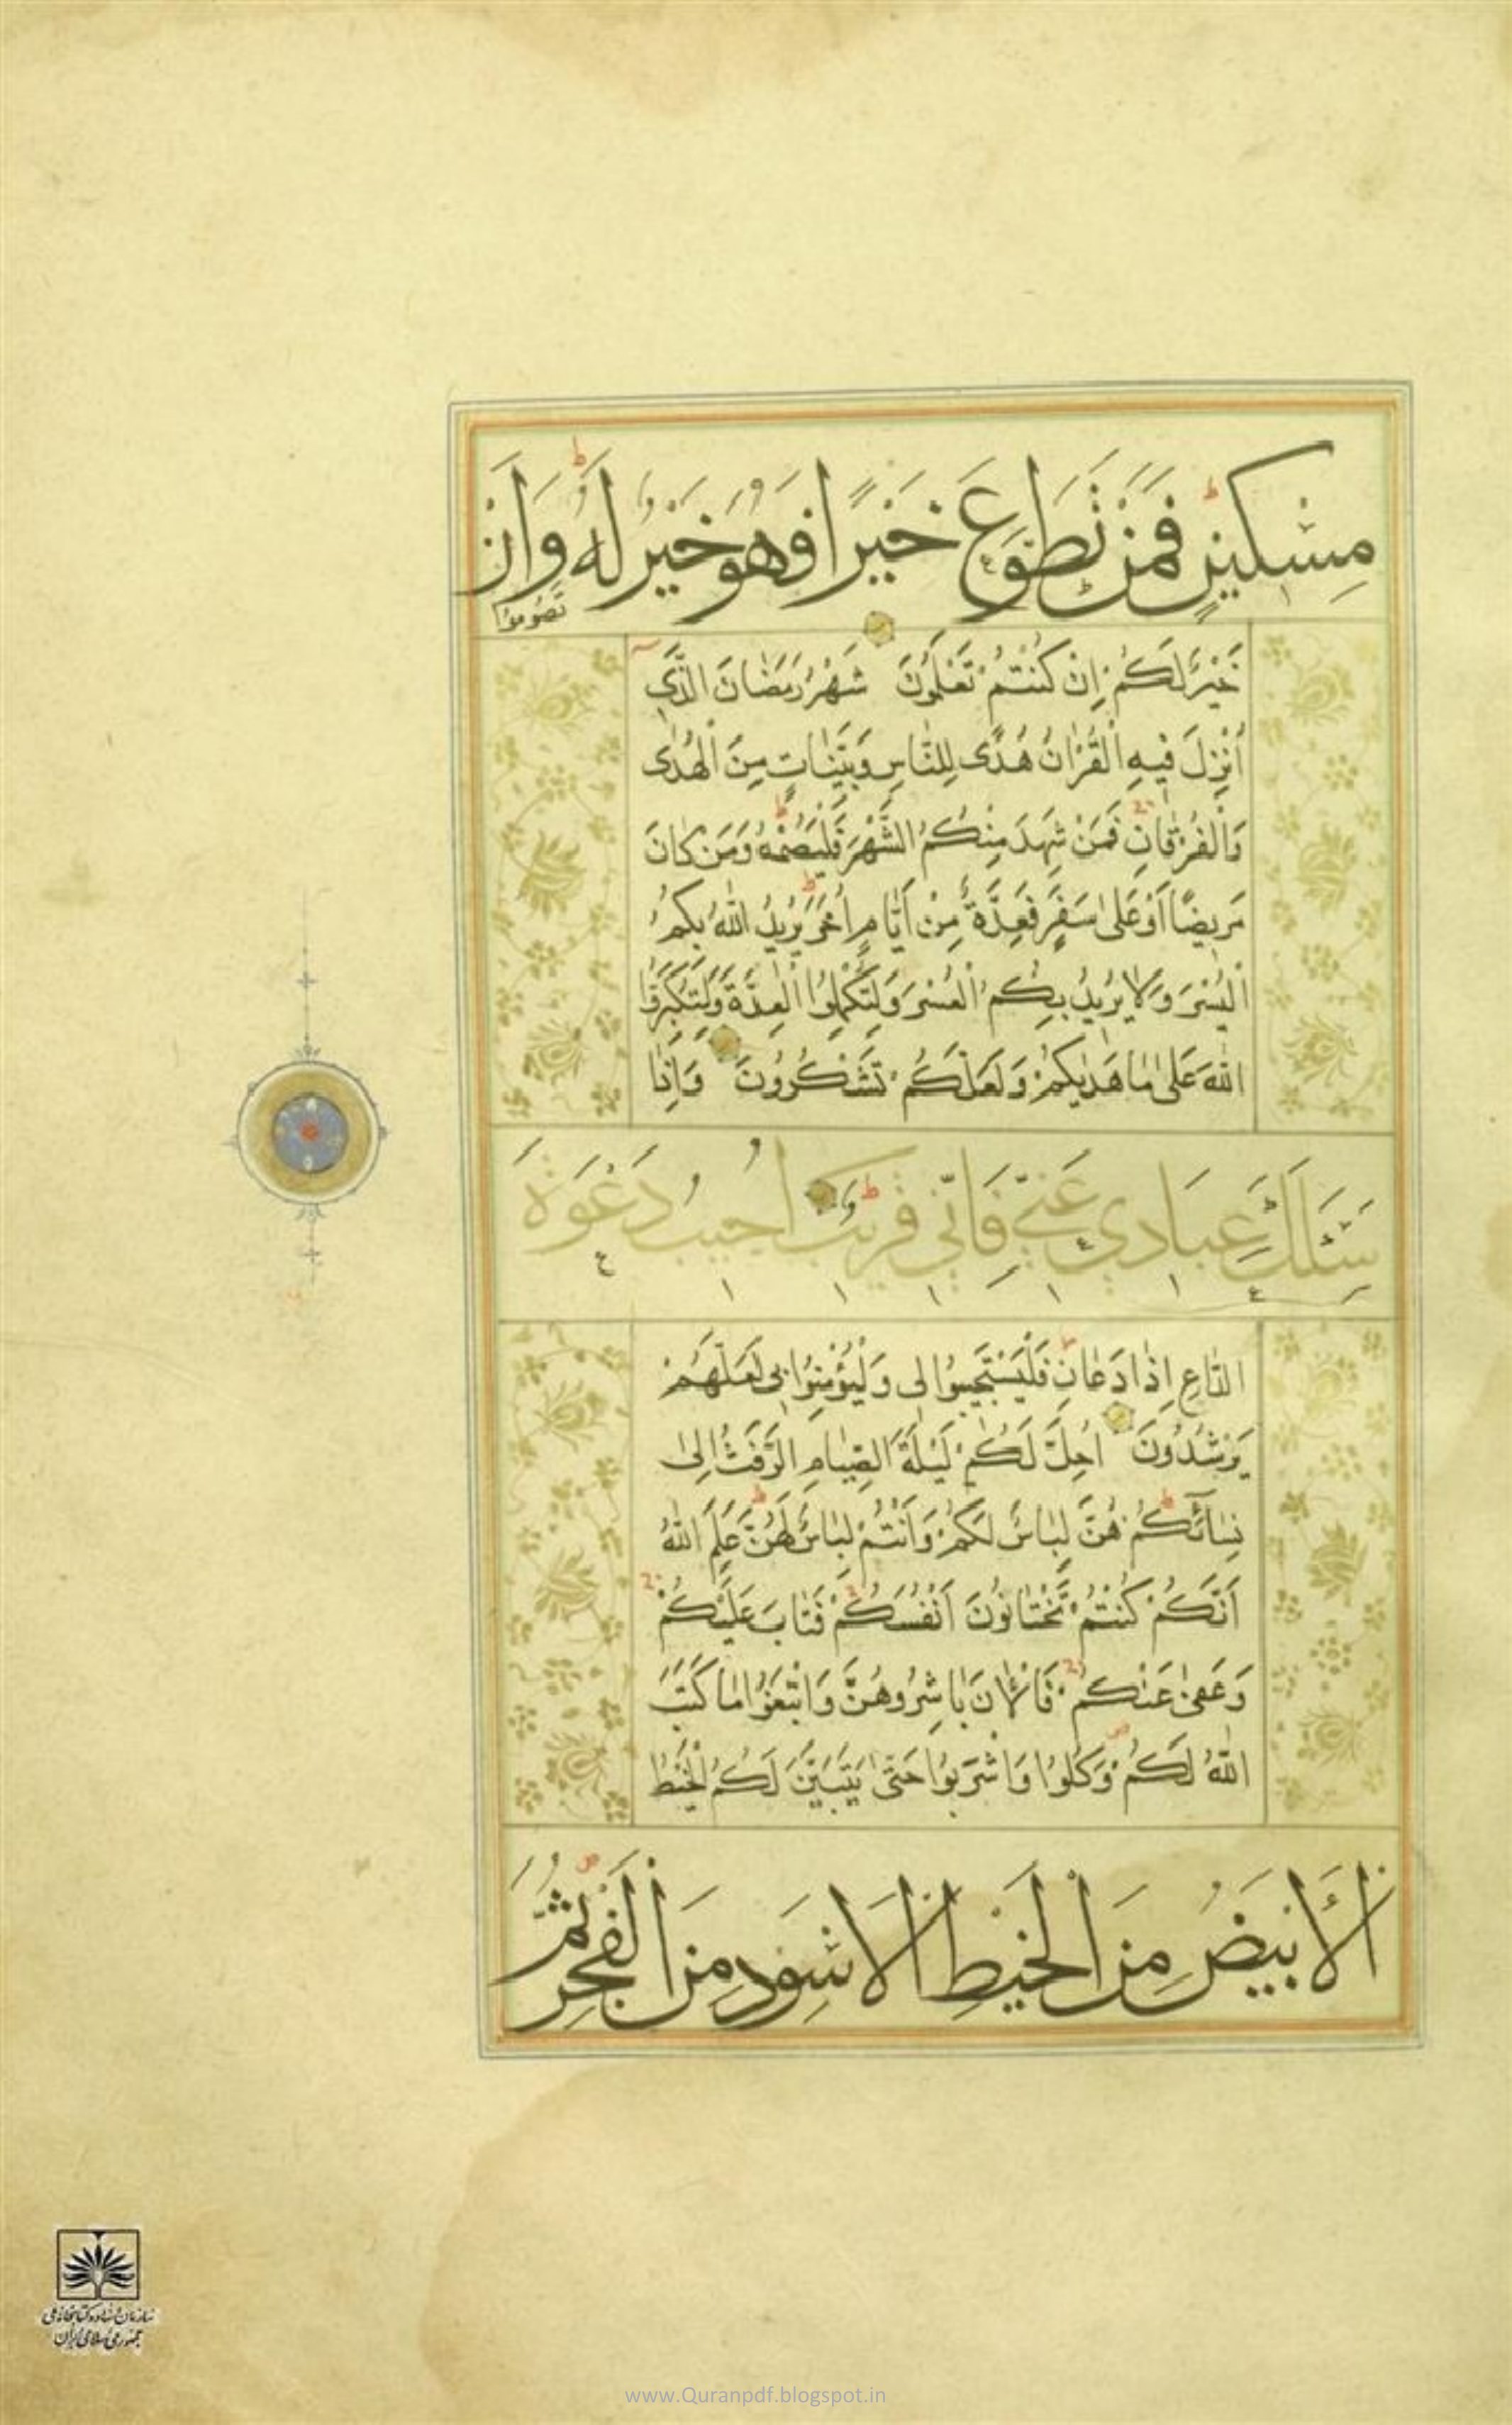 مِسْكِينٍ فَمَنْ تَطَوَّعَ خَيْرًا فَهُوَ خَيْرٌ لَهُ وَأَنْ
تَصُومُوا
خَيْرٌ لَكُمْ إِنْ كُنْتُمْ تَعْلَمُونَ شَهْرُ رَمَضَانَ الَّذِي
أُنْزِلَ فِيهِ الْقُرْاٰنُ هُدًى لِلنَّاسِ وَبَيِّنَاتٍ مِنَ الْهُدٰى
وَالْفُرْقَانِ فَمَنْ شَهِدَ مِنْكُمُ الشَّهْرَ فَلْيَصُمْهُ وَمَنْ كَانَ
مَرِيضًا أَوْ عَلٰى سَفَرٍ فَعِدَّةٌ مِنْ أَيَّامٍ أُخَرَ يُرِيدُ اللّٰهُ بِكُمُ
الْيُسْرَ وَلَا يُرِيدُ بِكُمُ الْعُسْرَ وَلِتُكْمِلُوا الْعِدَّةَ وَلِتُكَبِّرُوا
اللّٰهَ عَلٰى مَا هَدٰيكُمْ وَلَعَلَّكُمْ تَشْكُرُونَ وَإِذَا
سَئَلَكَ عِبَادِي عَنِّي فَإِنِّي قَرِيبٌ أُجِيبُ دَعْوَةَ
الدَّاعِ إِذَا دَعَانِ فَلْيَسْتَجِيبُوا لِى وَلْيُؤْمِنُوا بِى لَعَلَّهُمْ
يَرْشُدُونَ أُحِلَّ لَكُمْ لَيْلَةَ الصِّيَامِ الرَّفَثُ إِلٰى
نِسَآئِكُمْ هُنَّ لِبَاسٌ لَكُمْ وَأَنْتُمْ لِبَاسٌ لَهُنَّ عَلِمَ اللّٰهُ
أَنَّكُمْ كُنْتُمْ تَخْتَانُونَ أَنْفُسَكُمْ فَتَابَ عَلَيْكُمْ
وَعَفٰى عَنْكُمْ فَالْاٰنَ بَاشِرُوهُنَّ وَابْتَغُوا مَا كَتَبَ
اللّٰهُ لَكُمْ وَكُلُوا وَاشْرَبُوا حَتّٰى يَتَبَيَّنَ لَكُمُ الْخَيْطُ
الْأَبْيَضُ مِنَ الْخَيْطِ الْأَسْوَدِ مِنَ الْفَجْرِ ثُمَّ
سازمان اسناد و کتابخانه ملی
جمهوری اسلامی ایران
www.Quranpdf.blogspot.in